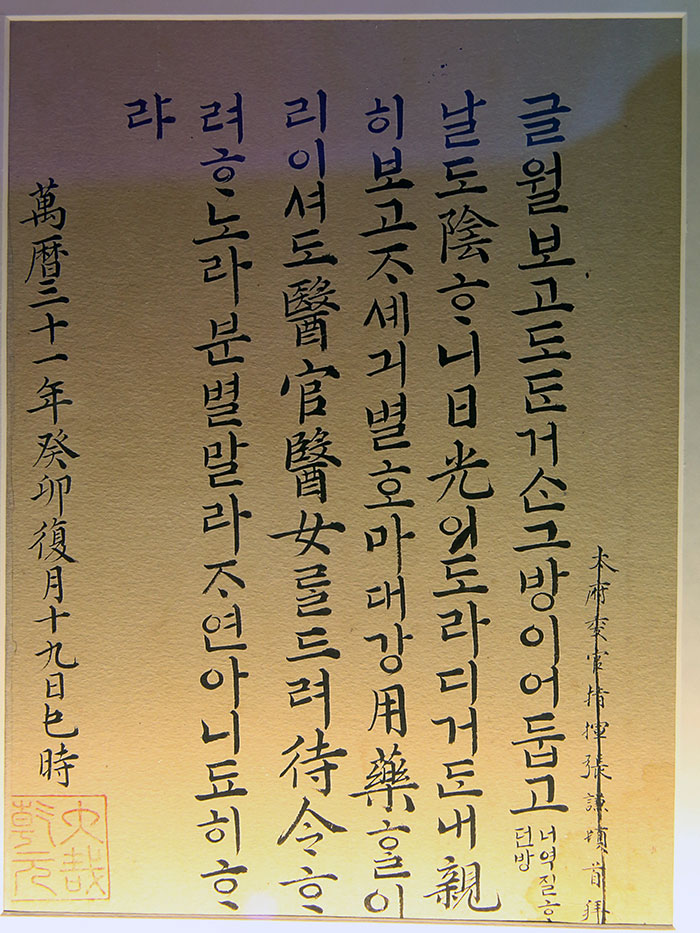 本府差官指揮張謙頓首拜
글월보고도ᄃᆞᆫ거ᄉᆞᆫ그방이어둡고
너역질ᄒᆞ
던방
날도陰ᄒᆞ니日光이도라디거ᄃᆞᆫ내親
히보고ᄌᆞ셰긔별호마대강用藥ᄒᆞᆯ이
리이셔도醫官醫女ᄅᆞᆯ드려待令ᄒᆞ
려ᄒᆞ노라분별말라ᄌᆞ연아니됴히ᄒᆞ
랴
萬曆三十一年癸卯復月十九日巳時
大哉
乾元